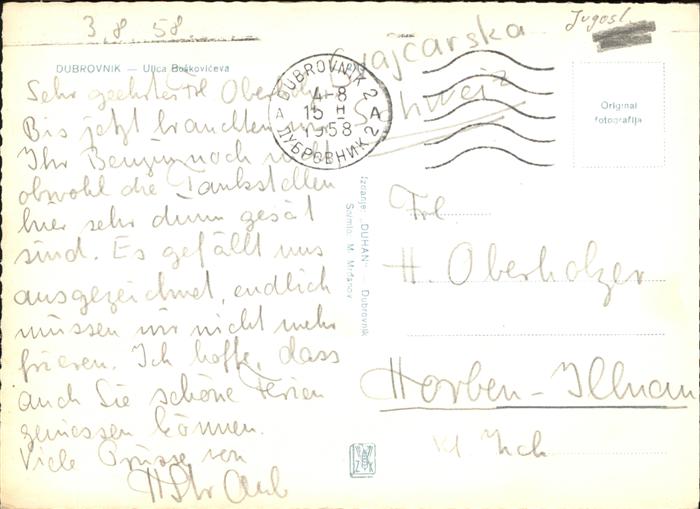 3.8.58
Jugosl.
DUBROVNIK — Ulica Boškovićeva
Švajcarska
Schweiz
DUBROVNIK 2
4-8
15 H
1958
A A
ДУБРОВНИК 2
Original
fotografija
Sehr geehrtes Frl Oberholzer
Bis jetzt brauchten wir
Ihr Benzin noch nicht
obwohl die Tankstellen
hier sehr dünn gesät
sind. Es gefällt uns
ausgezeichnet, endlich
müssen wir nicht mehr
frieren. Ich hoffe, dass
auch Sie schöne Ferien
geniessen können.
Viele Grüsse von
Izdanje: „DUHAN" Dubrovnik
Snimio: M.
Frl
H. Oberholzer
Horben-Illnau
Kt. Zch